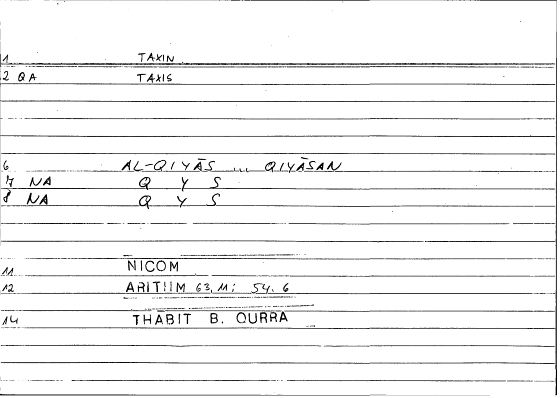 1 TAXIN
2 QA TAXIS
6 AL-QIYĀS ... QIYĀSAN
7 NA Q Y S
8 NA Q Y S
11 NICOM
12 ARITHM 63,11; 54.6
14 THABIT B. QURRA